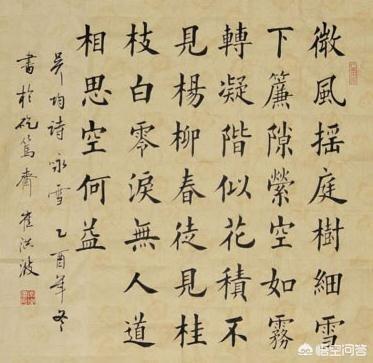 微風搖庭樹細雪
下簾隙縈空如霧
轉凝階似花積不
見楊柳春徒見桂
枝白零淚無人道
相思空何益
吳均诗咏雪乙酉年冬
書於篤齋崔洪波
悟空问答